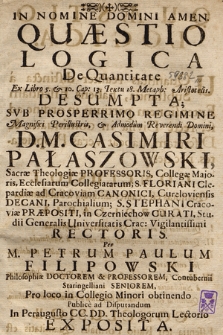 IN NOMINE DOMINI AMEN.
QUÆSTIO
LOGICA
De Quantitate
Ex Libro 5. & 10. Cap: 13. Textu 18. Metaph: Aristotelis.
DESUMPTA,
SVB PROSPERRIMO REGIMINE
Magnifici Perillustris, & Admodùm Reverendi Domini,
D. M. CASIMIRI
PAŁASZOWSKI,
Sacræ Theologiæ PROFESSORIS, Collegæ Majo-
ris, Ecclesiarum Collegiatarum, S. FLORIANI Cle-
pardiæ ad Cracoviam CANONICI, Cureloviensis
DECANI, Parochialium; S. STEPHANI Craco-
viæ PRÆPOSITI, in Czerniechow CURATI, Stu-
dii Generalis Universitatis Crac: Vigilantissimi
RECTORIS.
Per
M. PETRUM PAULUM
FILIPOWSKI
Philosophiæ DOCTOREM & PROFESSOREM, Contubernii
Staringelliani SENIOREM,
Pro loco in Collegio Minori obtinendo
Publicè ad Disputandum
In Peraugusto CC. DD. Theologorum Lectorio
EXPOSITA.